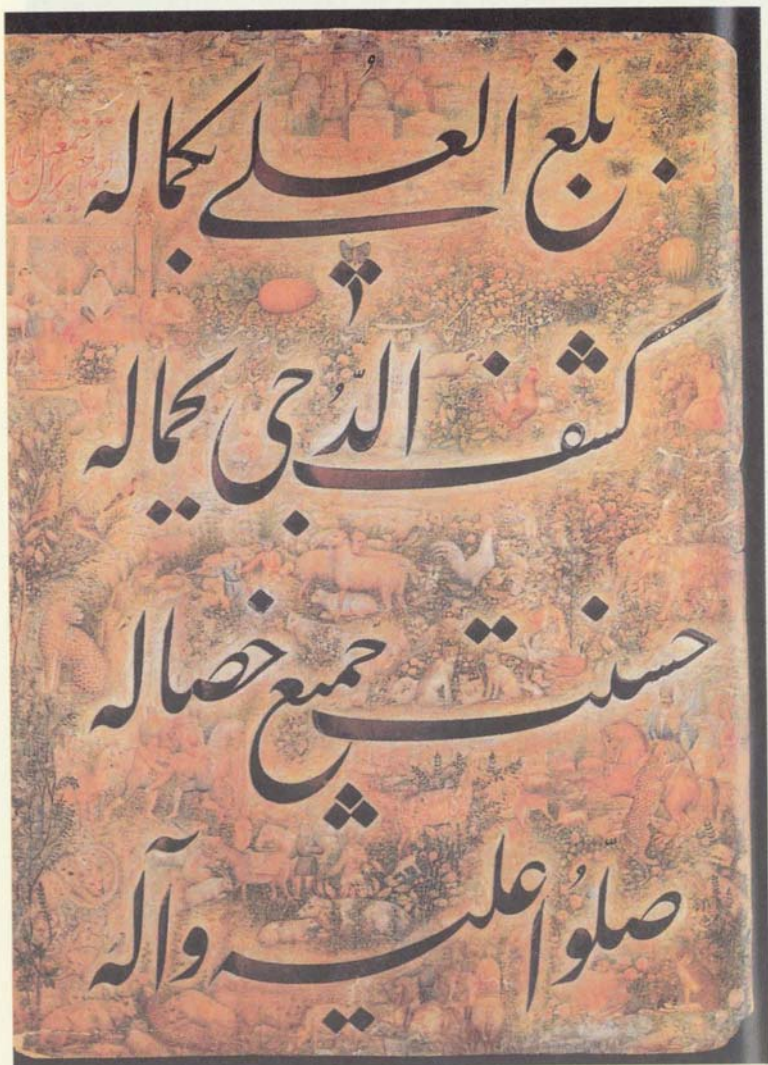 بلغ العلی بکماله
کشف الدُّجی بجماله
حسنت جمیع خصاله
صلّوُا علیه وآله